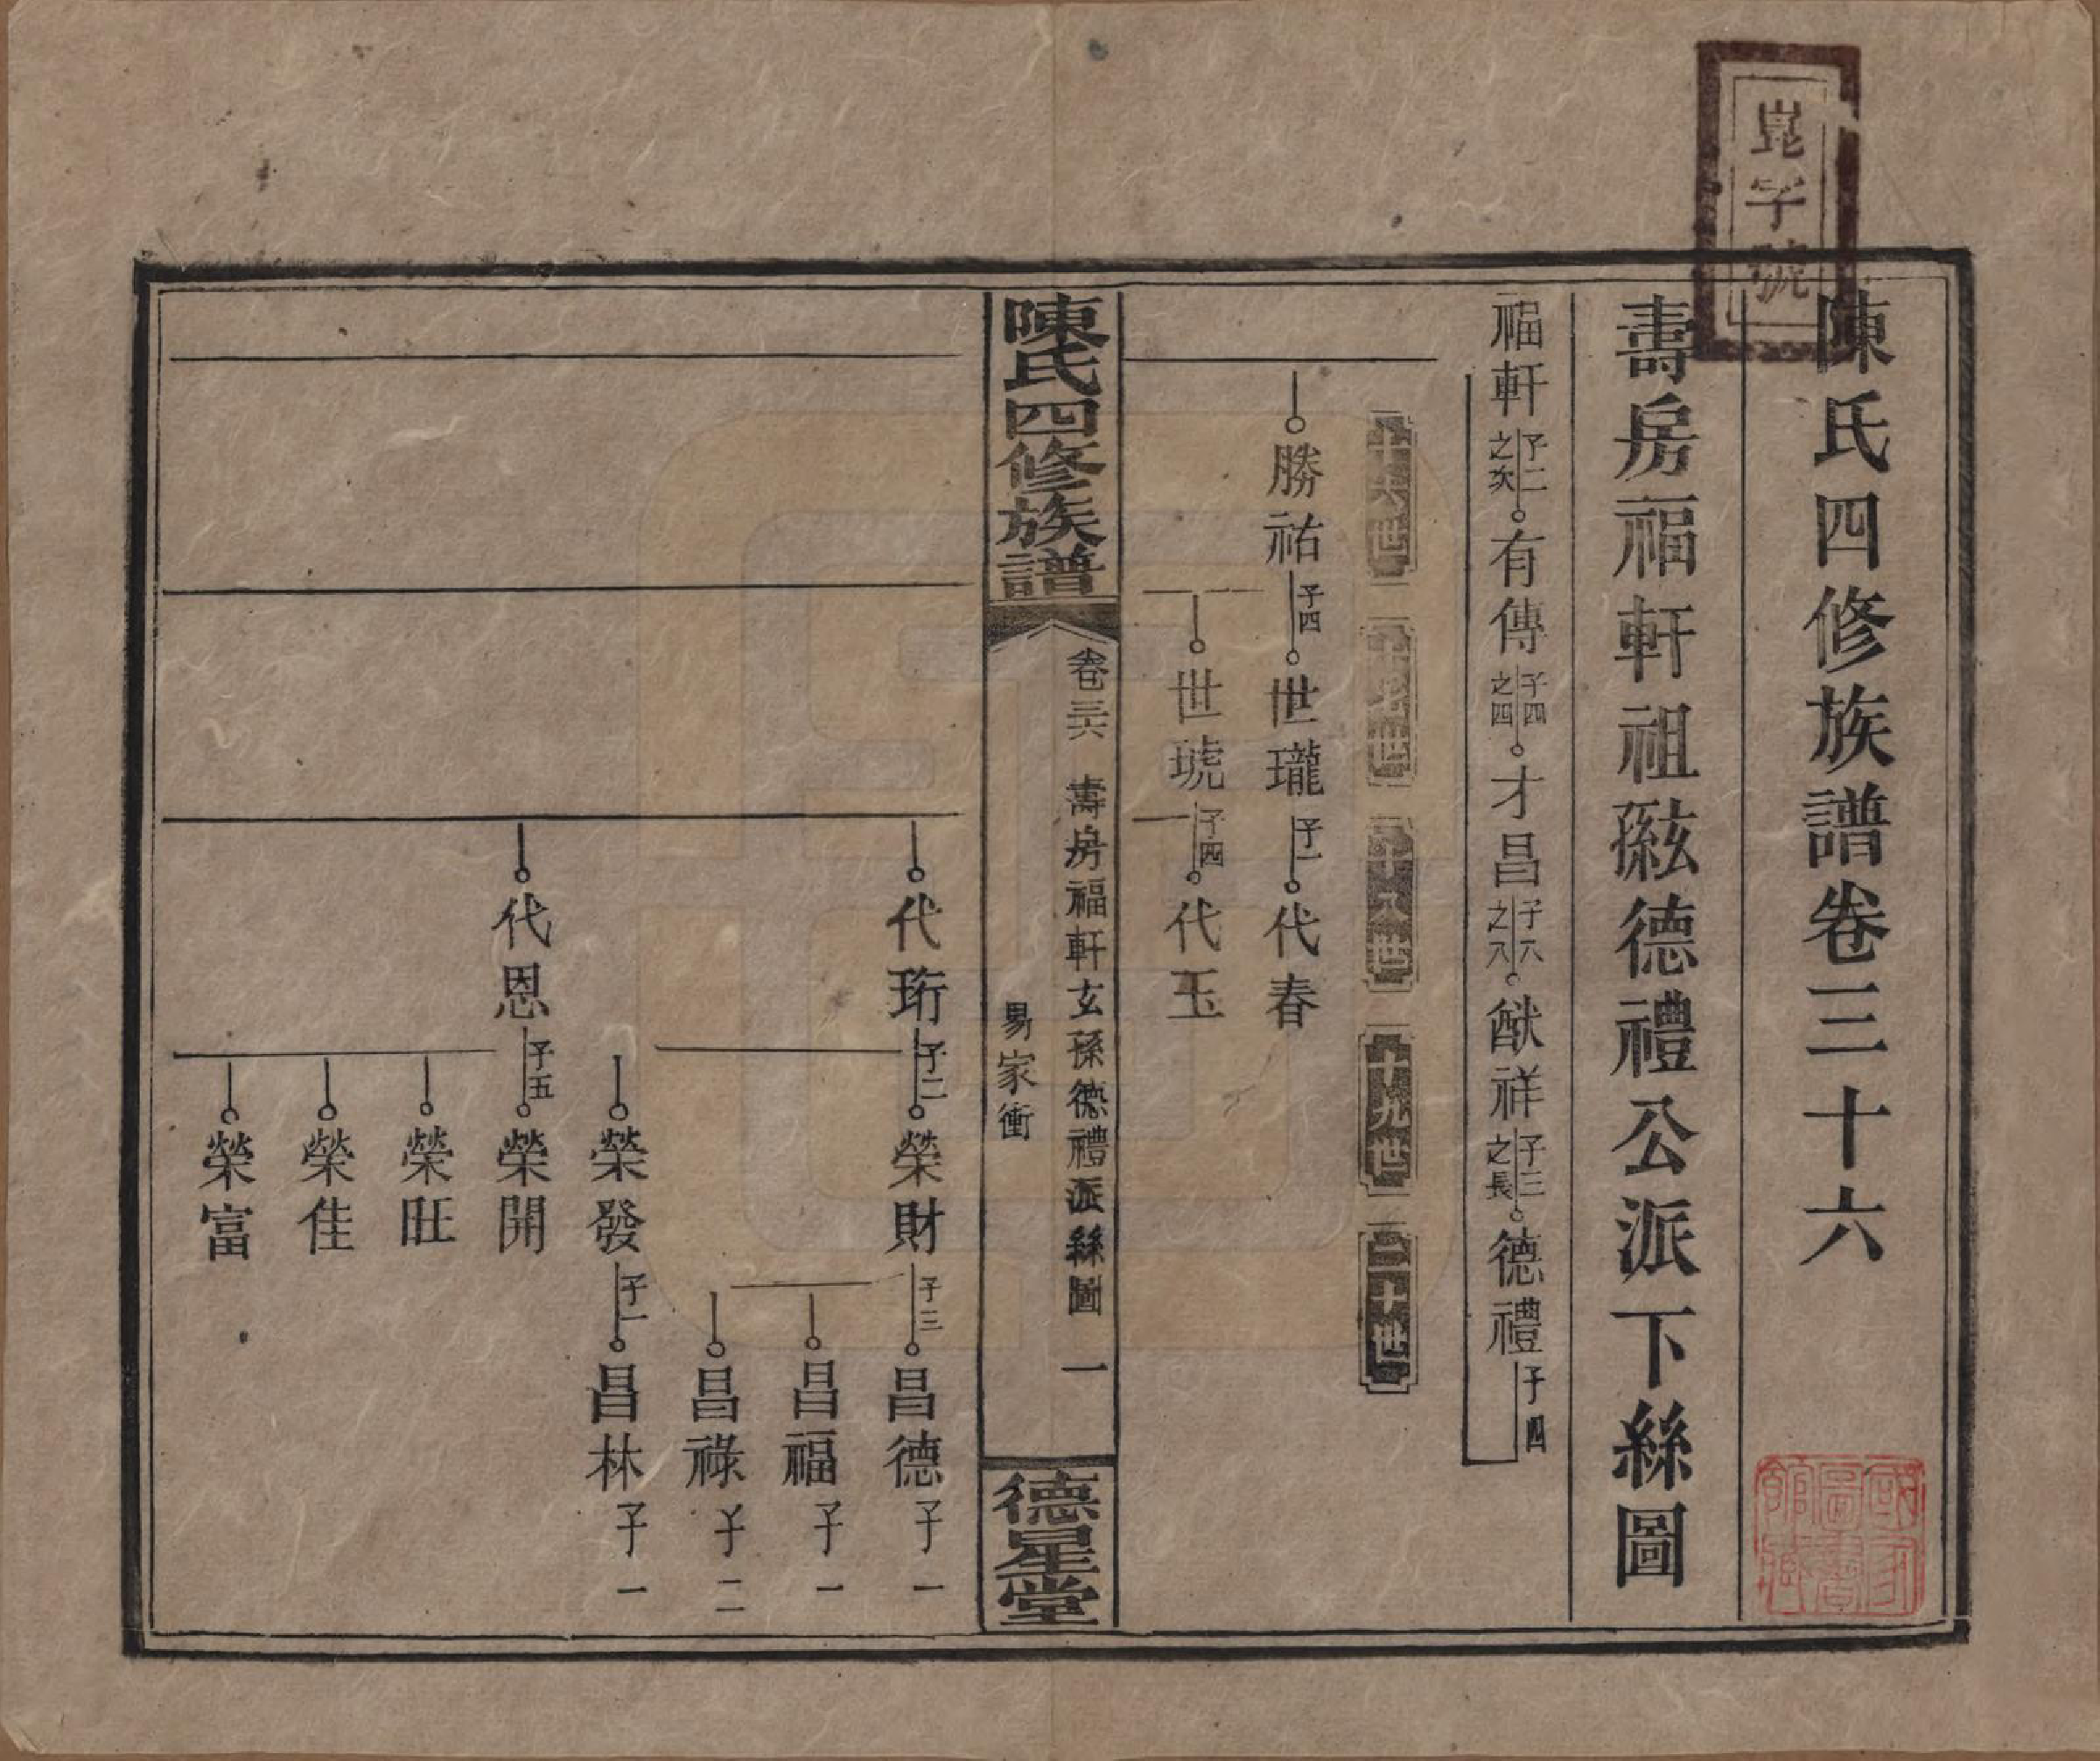 崑字號
陳氏四修族譜卷三十六
壽房福軒祖孫玄德禮公派下絲圖
福軒 子二之次 有傳 子四之四 才昌 子八之八 猷祥 子三之長 德禮 子四
十六世 十七世 十八世 十九世 二十世
勝祐 子四 世瓏 子一 代春
世琥 子四 代玉
陳氏四修族譜
卷三六 壽房福軒玄孫德禮派絲圖 一
易家衝
德星堂
代珩 子二 榮財 子三 昌德 子一
昌福 子一
昌祿 子二
榮發 子一 昌林 子一
代恩 子五 榮開
榮旺
榮佳
榮富
國家圖書館藏